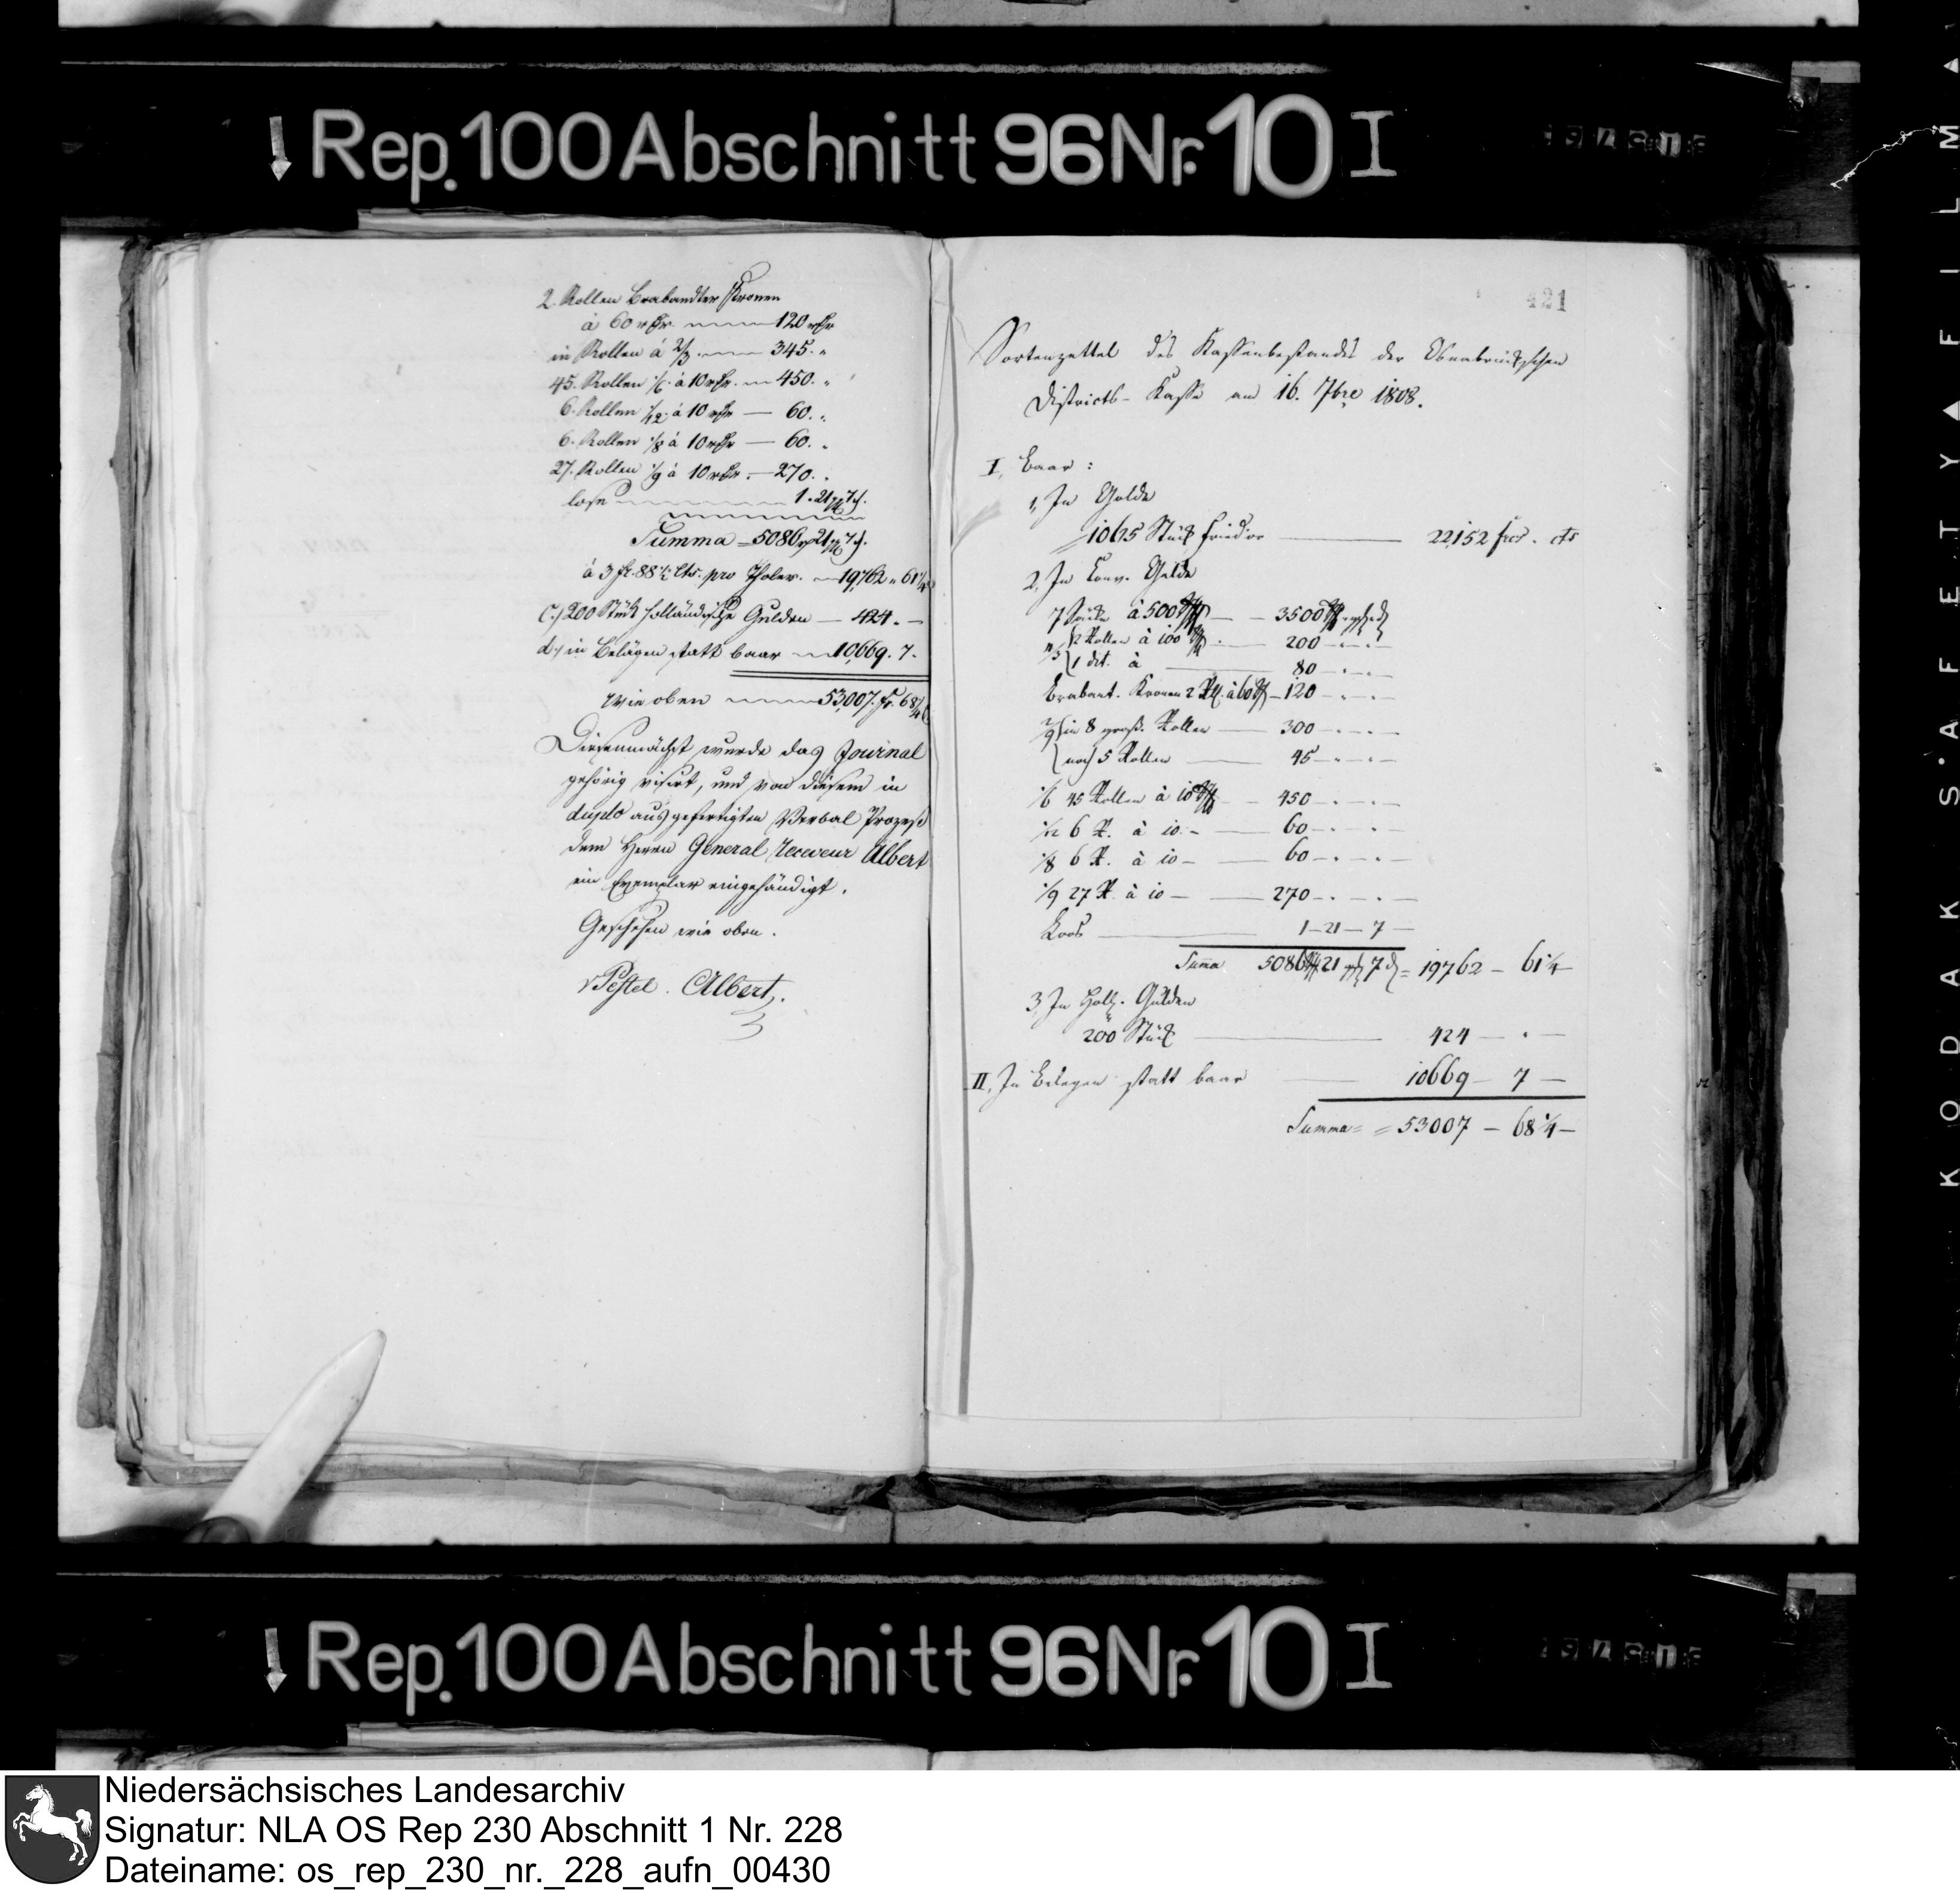 Rep. 100 Abschnitt 96 Nr. 10 I
2. Rollen Brabandter Kronen
à 60 rthr. 120 rthr
in Rollen à 2/3. 345. "
45. Rollen 1/6. à 10 rthr. 450. "
6. Rollen 1/12. à 10 rthr — 60. "
6. Rollen 1/8 à 10 rthr — 60. "
27. Rollen 1/9 à 10 rthr. — 270. "
lose 1. 21 7
Summa = 5086 21 7
à 3 fr. 88 1/2 Cts. pro Thaler. 19,762 " 61 1/4
C.) 200 Stück holländische Gulden — 424. —
d.) in Belägen statt baar 10,669. 7.
Wie oben 53,007. fr. 68 1/4
Diesemnächst wurde das Journal
gehörig visirt, und von diesem in
duplo ausgefertigten Verbal Prozeß
dem Herrn General Receveur Albert
ein Exemplar eingehändigt.
Geschehen wie oben.
vPestel. Albert.
421
Sortenzettel des Kassenbestandes der Osnabrückschen
Districts-Kasse am 16. 7bre 1808.
I, Baar:
1, In Golde
1065 Stück Friedor — 22152 frcs. cts
2, In Conv. Gelde
7 Säcke à 500 — 3500
1/3 2 Rollen à 100 — 200
1 dit. à — 80
Brabant. Kronen 2 Rll. à 60 — 120
2/3 in 8 große Rollen — 300
noch 5 Rollen — 45
1/6 45 Rollen à 10 — 450
1/12 6 R. à 10 — 60
1/8 6 R. à 10 — 60
1/9 27 R. à 10 — 270
Loos — 1 — 21 — 7 —
Summa 5086 21 7 = 19762 — 61 1/4
3, In Holl. Gulden
200 Stück — 424 —
II, In Belegen statt baar — 10669 — 7 —
Summa = 53007 — 68 1/4 —
KODAK S·A·F·E·T·Y FILM
Rep. 100 Abschnitt 96 Nr. 10 I
Niedersächsisches Landesarchiv
Signatur: NLA OS Rep 230 Abschnitt 1 Nr. 228
Dateiname: os_rep_230_nr._228_aufn_00430